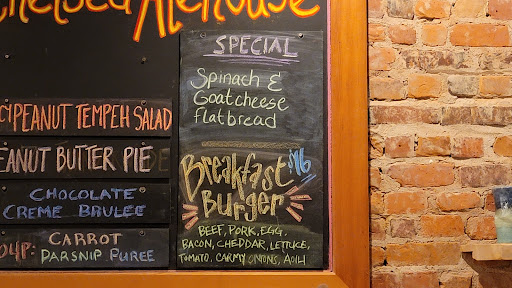 Chelsea Alehouse
PEANUT TEMPEH SALAD
PEANUT BUTTER PIE
CHOCOLATE
CREME BRULEE
CARROT
PARSNIP PUREE
SPECIAL
Spinach &
Goatcheese
flatbread
Breakfast $16
Burger
BEEF, PORK, EGG,
BACON, CHEDDAR, LETTUCE,
TOMATO, CARMY ONIONS, AOILI